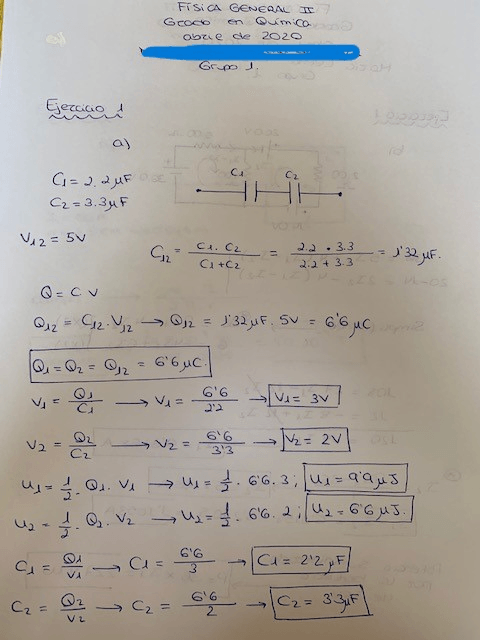 FÍSICA GENERAL II
Grado en Química
abril de 2020
Grupo 1.
Ejercicio 1
a)
C1 = 2.2 μF
C2 = 3.3 μF
C1 C2
V12 = 5V
C12 = C1 · C2 / C1 + C2 = 2.2 · 3.3 / 2.2 + 3.3 = 1'32 μF.
Q = C V
Q12 = C12 · V12 → Q12 = 1'32 μF · 5V = 6'6 μC
Q1 = Q2 = Q12 = 6'6 μC.
V1 = Q1 / C1 → V1 = 6'6 / 2'2 → V1 = 3V
V2 = Q2 / C2 → V2 = 6'6 / 3'3 → V2 = 2V
U1 = 1/2 · Q1 · V1 → U1 = 1/2 · 6'6 · 3; U1 = 9'9 μJ
U2 = 1/2 · Q2 · V2 → U2 = 1/2 · 6'6 · 2; U2 = 6'6 μJ.
C1 = Q1 / V1 → C1 = 6'6 / 3 → C1 = 2'2 μF
C2 = Q2 / V2 → C2 = 6'6 / 2 → C2 = 3'3 μF